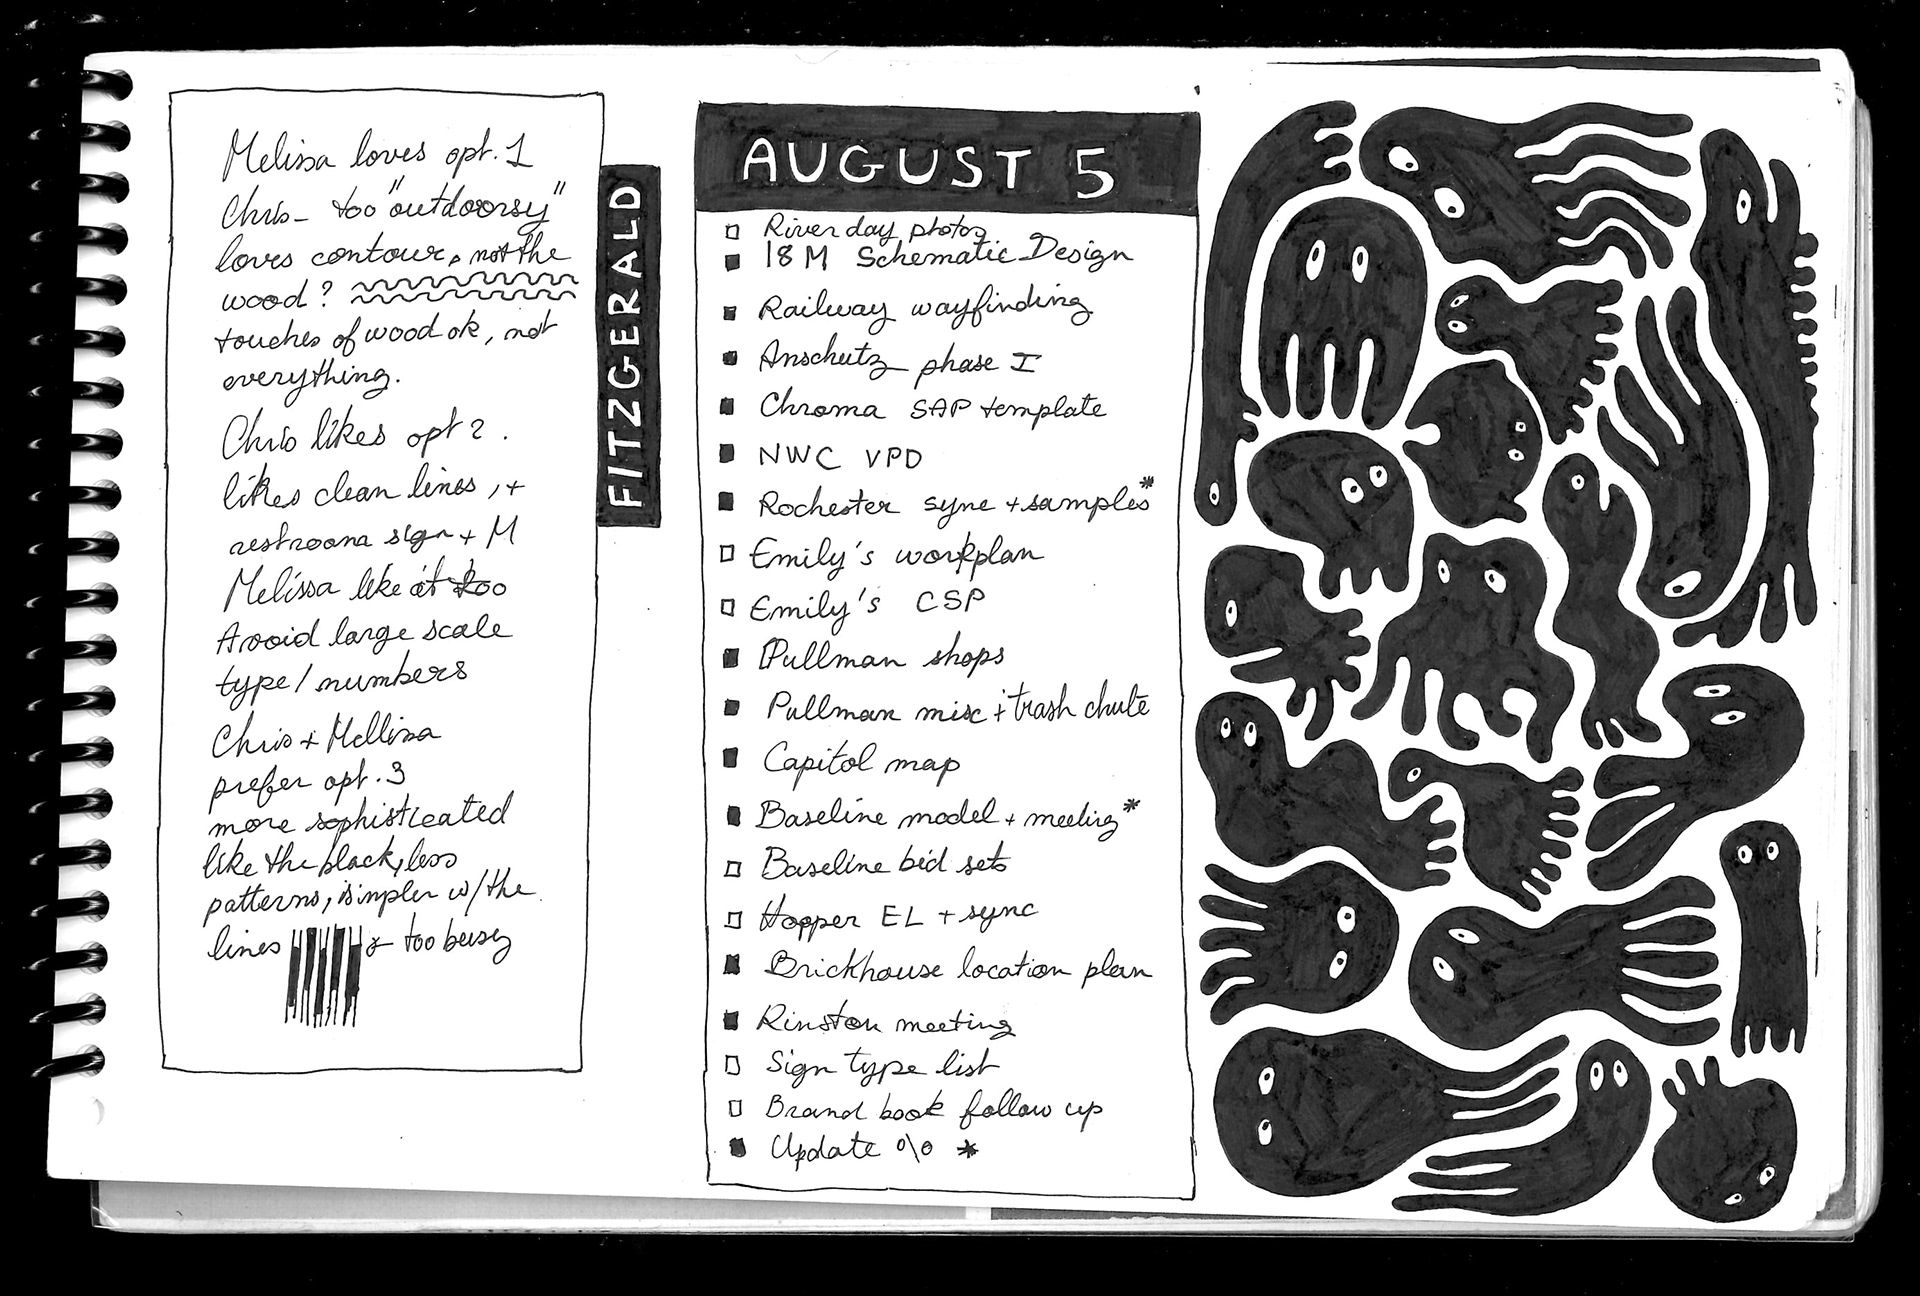 Melissa loves opt. 1
Chris - too "outdoorsy"
loves contour, not the
wood?
touches of wood ok, not
everything.
Chris likes opt 2.
likes clean lines, +
restroom sign + M
Melissa like it too
Avoid large scale
type / numbers
Chris + Mellissa
prefer opt. 3
more sophisticated
like the black, less
patterns, simpler w/ the
lines too busy
FITZGERALD
AUGUST 5
River day photos
18 M Schematic Design
Railway wayfinding
Anschutz phase I
Chroma SAP template
NWC VPD
Rochester sync + samples*
Emily's workplan
Emily's CSP
Pullman shops
Pullman misc + trash chute
Capitol map
Baseline model + meeting*
Baseline bid sets
Hopper EL + sync
Brickhouse location plan
Rinston meeting
Sign type list
Brand book follow up
Update % *